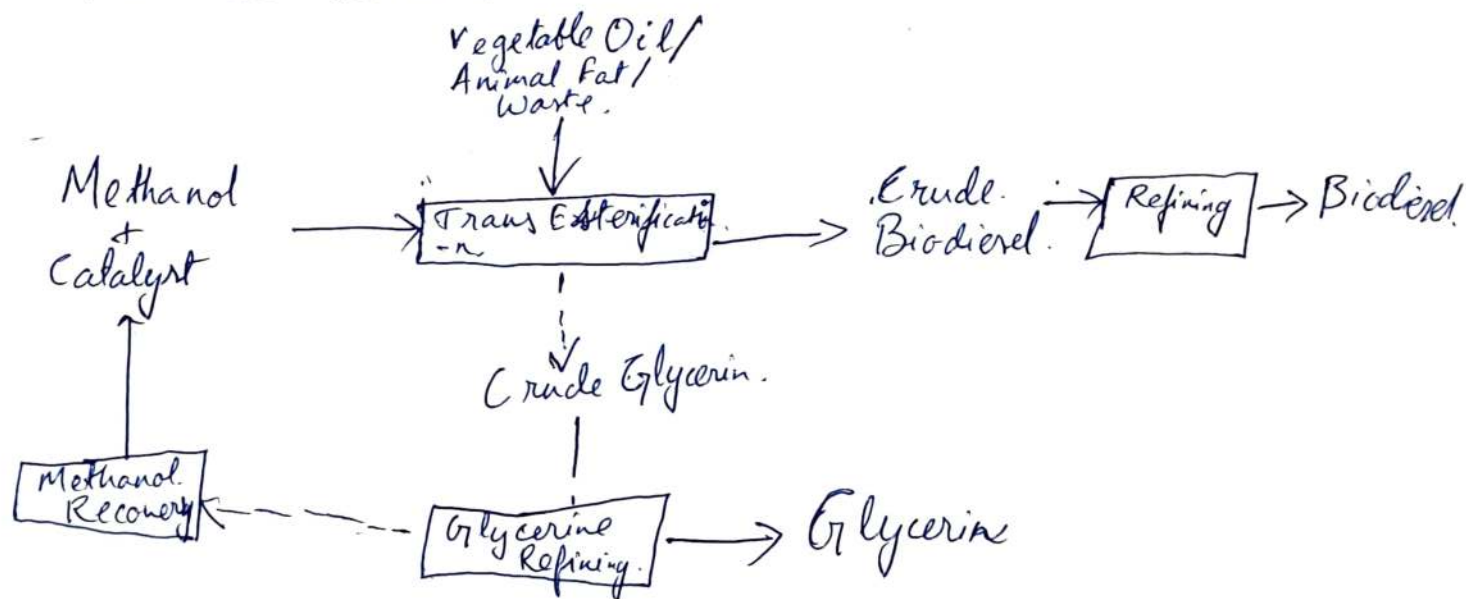 Vegetable Oil/
Animal Fat/
Waste.
Methanol
+
Catalyst
Trans Esterificatio
-n
Crude.
Biodiesel.
Refining
Biodiesel.
Crude Glycerin.
Methanol.
Recovery
Glycerine
Refining.
Glycerin